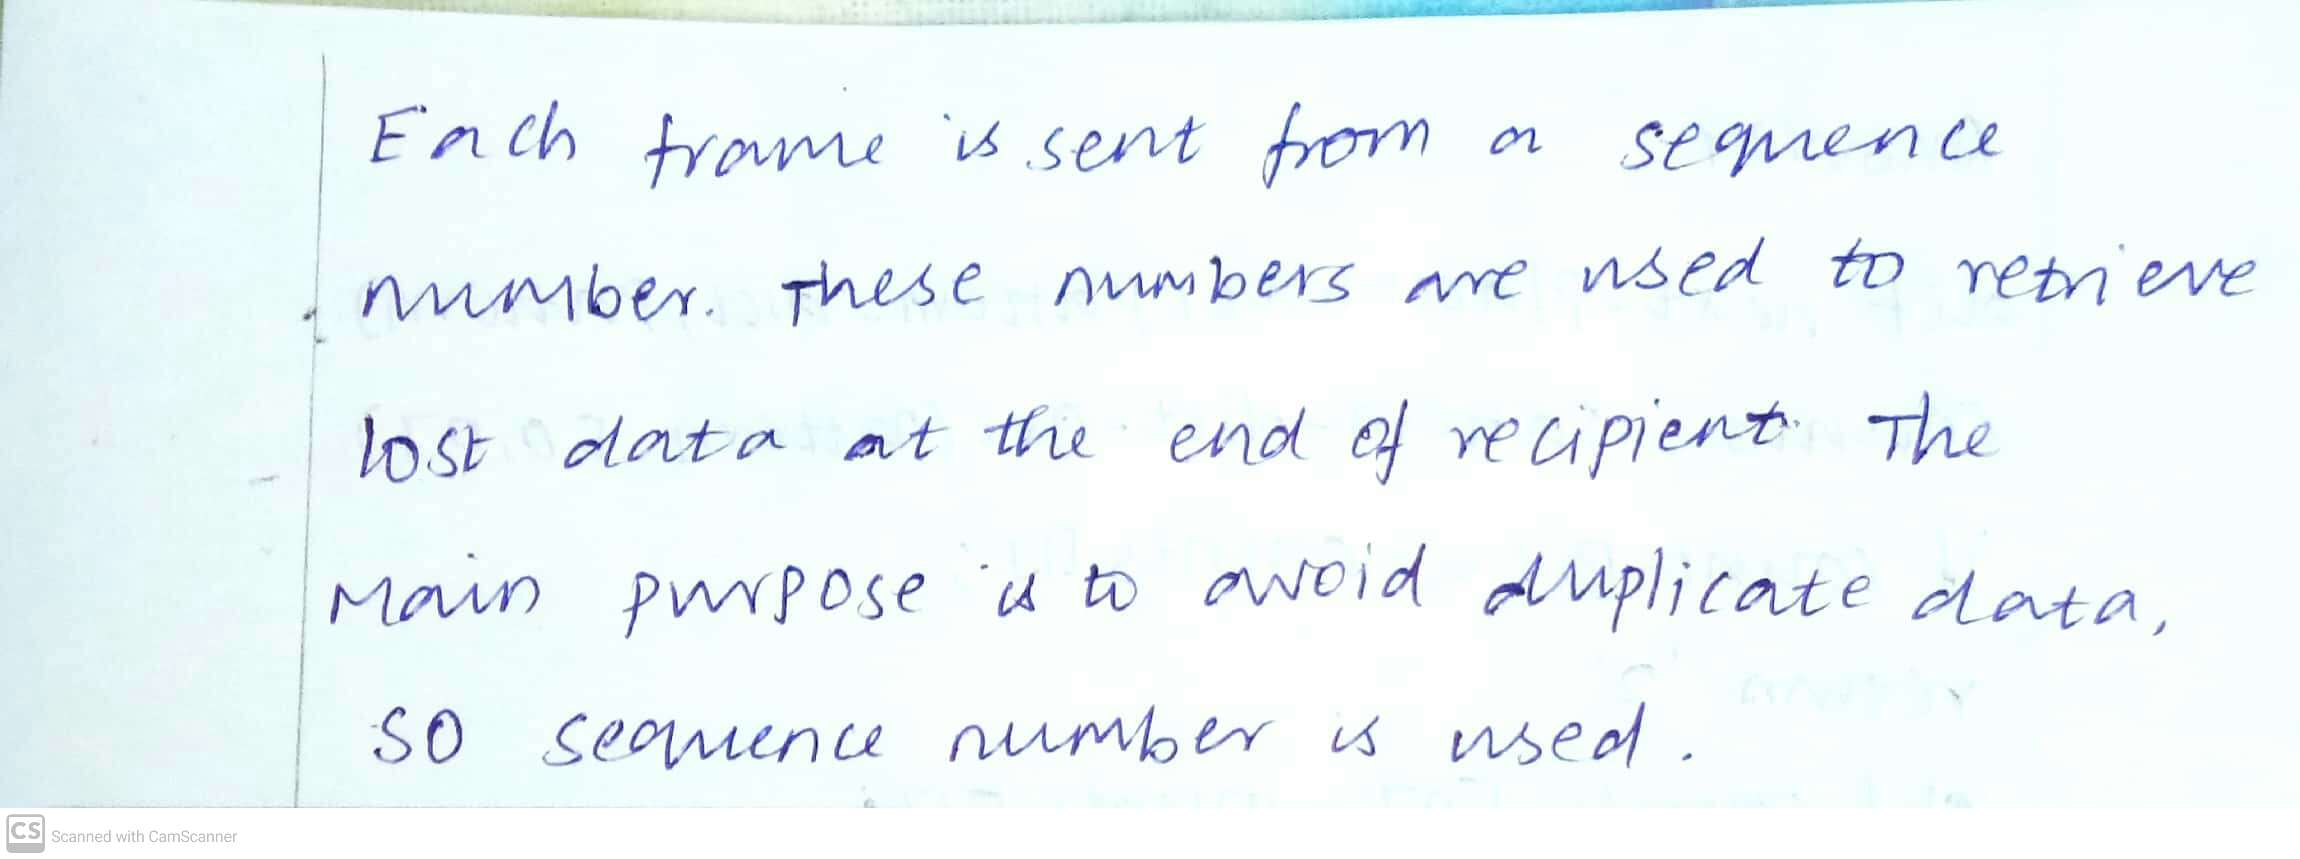 Each frame is sent from a sequence
number. These numbers are used to retrieve
lost data at the end of recipient. The
Main purpose is to avoid duplicate data,
so sequence number is used.
CS Scanned with CamScanner